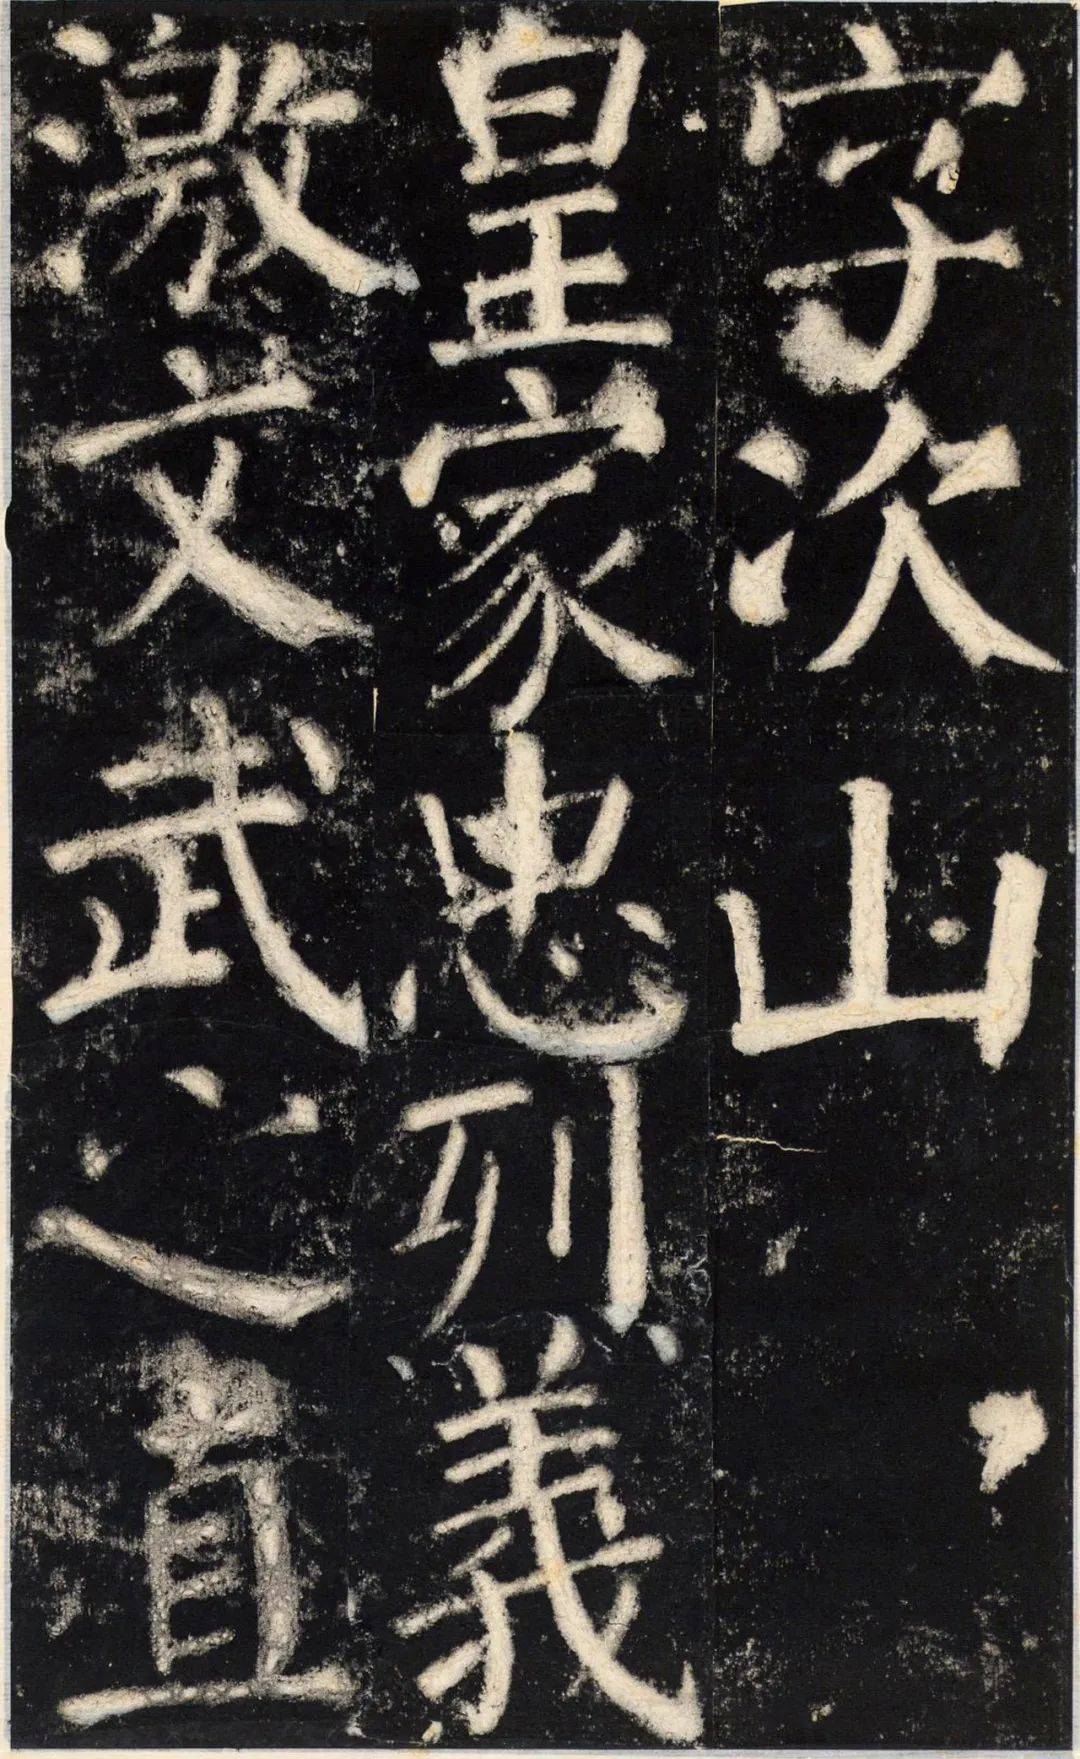 字次山
皇家忠烈義
激文武之直